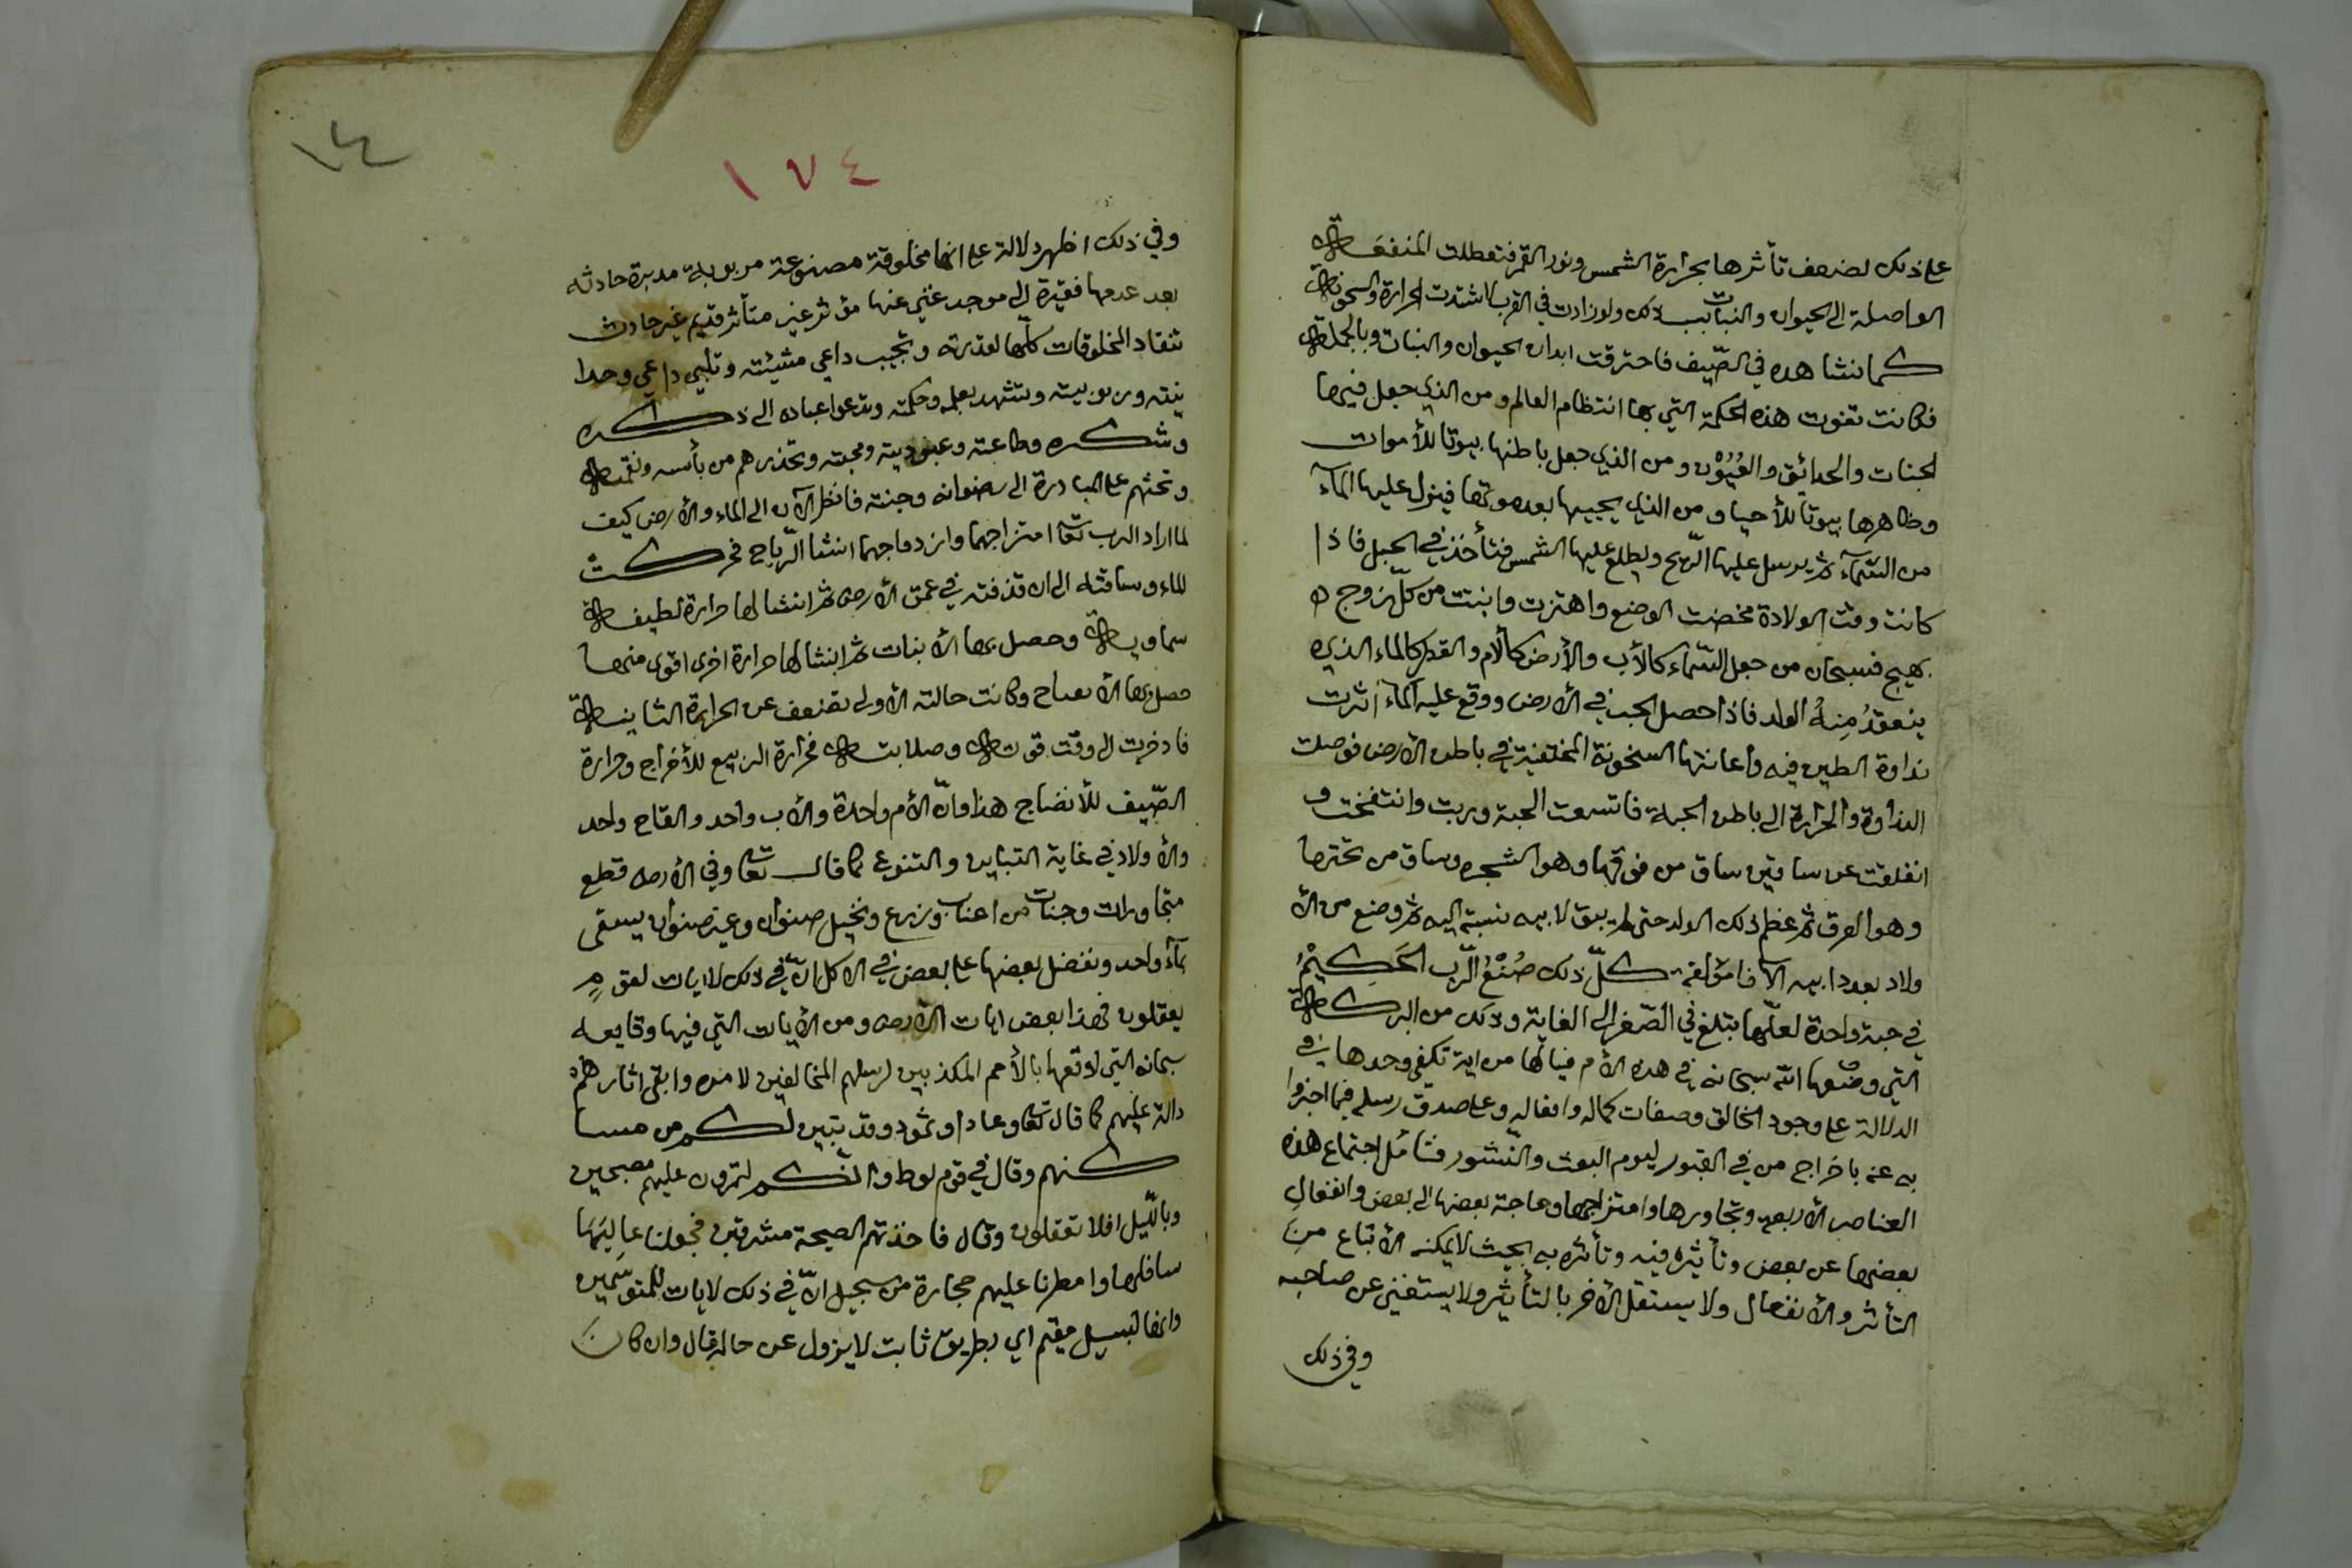 على ذلك لضعف تأثرها بحرارة الشمس ونور القمر فتعطلت المنفعة
الواصلة الى الحيوان والنبات بسبب ذلك ولو زادت في القرب لاشتدت الحرارة والسخونة
كما نشاهده في الصّيف فاحترقت ابدان الحيوان والنبات وبالجملة
فكانت تفوت هذه الحكمة التي بها انتظام العالم ومن الذي جعل فيها
الجنات والحدائق والعُيُوْن ومن الذي جعل باطنها بيوتا للأموات
وظاهرها بيوتا للأحياء ومن الذي يحييها بعد موتها فينزل عليها المآء
من السّمآء ثم يرسل عليها الرّيح ويطلع عليها الشمس فتأخذ في الحبل فاذا
كانت وقت الولادة مخضت الوضع واهتزت وانبتت من كلّ زوج
بهيج فسبحان من جعل السّماء كالأب والأرض كالأم والقطر كالماء الذي
ينعقدُ مِنهُ الولد فاذا حصل الحب في الأرض ووقع عليه المآء اثرت
نداوة الطين فيه واعانتها السخونة المختفية في باطن الأرض فوصلت
النداوة والحرارة الى باطن الحبة فاتسعت الحبة وربت وانتفخت و
انفلقت عن ساقين ساق من فوقها وهو الشجره وساق من تحتها
وهو العرق ثم عظم ذلك الولد حتى لم يبق لابيه نسبة اليه ثم وضع من الأ
ولاد بعد ابيه الآفا مؤلفة كلّ ذلك صُنْعُ الرّب الحَكِيْمُ
في حبة واحدة لعلّها تبلغ في الصّغر الى الغاية وذلك من البركة
التي وضعها الله سبحانه في هذه الأم فيالها من اية تكفي وحدها في
الدلالة على وجود الخالق وصفات كماله وافعاله وعلى صدق رسله فيما اخبروا
به عنه باخراج من في القبور ليوم البعث والنّشور فتأمّل اجتماع هذه
العناصر الأربعة وتجاورها وامتزاجها وحاجة بعضها الى بعض وانفعالِ
بعضها عن بعض وتأثيره فيه وتأثره به بحيث لا يمكنه الأمتناع مِنَ
التأثر والأنفعال ولا يستقل الأخر بالتأثير ولا يستغني عن صاحبه
وفي ذلك
١٧٤
وفي ذلك اظهر دلالة على انها مخلوقة مصنوعة مربوبة مدبرة حادثه
بعد عدمها فقيرة الى موجد غني عنها مؤثر غير متأثر قديم غير حادث
تنقاد المخلوقات كلّها لقدرته وتجيب داعي مشيئته وتلبي داعي وحدا
نيته وربوبيته وتشهد بعلمه وحكمته وتدعوا عباده الى ذكره
وشكره وطاعته وعبوديته ومحبته وتحذرهم من بأسه ونقمته
وتحثهم على المبادرة الى رضوانه وجنته فانظر الآن الى الماء والأرض كيف
لما اراد الرب تعا امتزاجهما وازدواجهما انشا الرّياح فحركت
الماء وساقته الى ان قذفته في عمق الأرض ثم انشا لها حرارة لطيفة
سماوية وحصل بها الأنبات ثم انشا لها حرارة اخرى اقوى منها
حصل بها الأنضاج وكانت حالته الأولى تضعف عن الحرارة الثانية
فادخرت الى وقت قوته وصلابته فحرارة الربيع للأخراج وحرارة
الصّيف للأنضاج هذا وانّ الأم واحدة والأب واحد واللقاح واحد
والأولاد في غاية التباين والتنوع كما قال تعا وفي الأرض قطع
متجاورات وجنات من اعناب وزرع ونخيل صنوان وغير صنوان يسقى
بمآء واحد ونفضل بعضها على بعض في الاكل انّ في ذلك لايات لقومٍ
يعقلون فهذا بعض ايات الأرض ومن الأيات التي فيها وقايعه
سبحانه التي اوقعها بالأمم المكذبين لرسلهم المخالفين لامره وابقى اثارهم
دالة عليهم كما قال تعا وعادا وثمود وقد تبين لكم من مسا
كنهم وقال في قوم لوط وانّكم لتمرون عليهم مصبحين
وبالّيل افلا تعقلون وقال فاخذتهم الصيحة مشرقين فجعلنا عالِيَهَا
سافلها وامطرنا عليهم حجارة من سجيل انّ في ذلك لايات للمتوسّمين
وانها لبسبيل مقيم اي بطريق ثابت لا يزول عن حاله قال وان كان